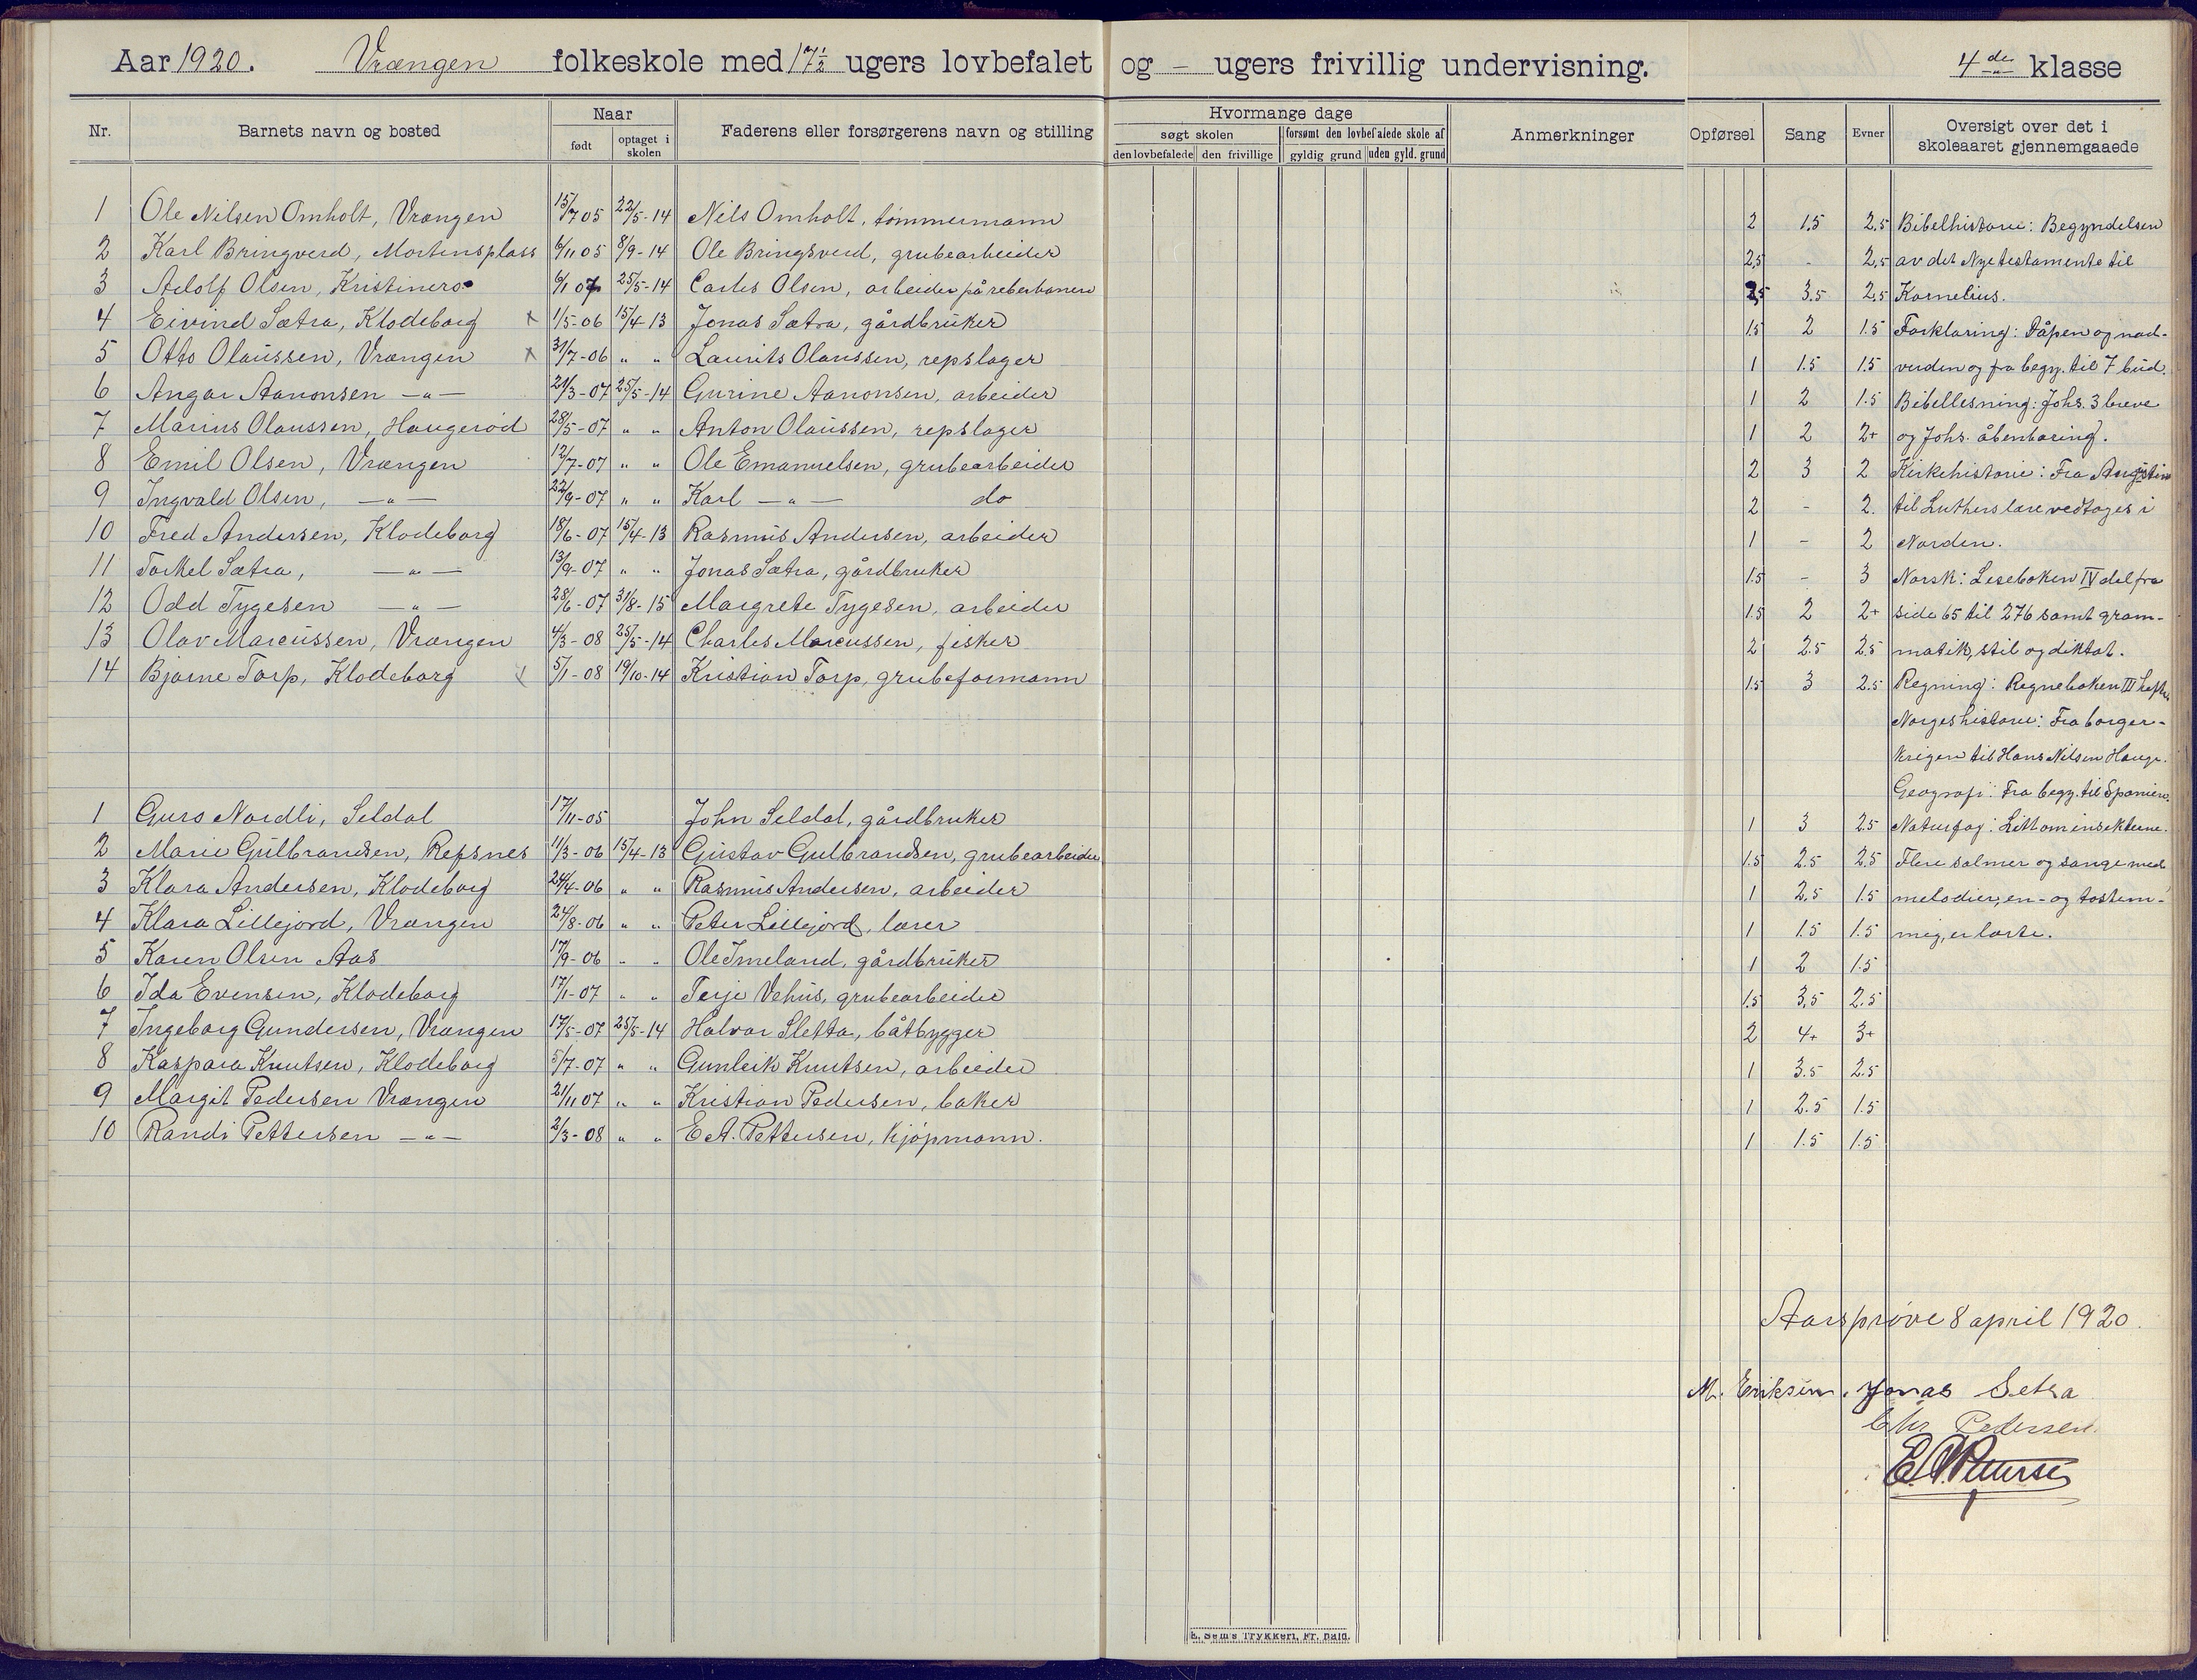 Aar 1920. Vrængen folkeskole med 17½ ugers lovbefalet og - ugers frivillig undervisning. 4de klasse
Nr. Barnets navn og bosted Naar født optaget i skolen Faderens eller forsørgerens navn og stilling
Hvormange dage søgt skolen den lovbefalede den frivillige forsømt den lovbefalede skole af gyldig grund uden gyld. grund Anmerkninger Opførsel Sang Evner Oversigt over det i skoleaaret gjennemgaaede
1 Ole Nilsen Omholt, Vrængen 15/7 05 22/5-14 Nils Omholt, tømmermann 2 1.5 2.5 Bibelhistorie: Begyndelsen
2 Karl Bringverd, Mortensplass 6/11 05 8/9-14 Ole Bringsverd, grubearbeider 2,5 - 2,5 av det Nye testamente til
3 Adolf Olsen, Kristinero 6/1 07 25/5-14 Carles Olsen, arbeider på reberbanen 2,5 3.5 2,5 Kornelius.
4 Eivind Sætra, Klodeborg x 1/5-06 15/4 13 Jonas Sætra, gårdbruker 1.5 2 1.5 Forklaring: Dåpen og nad-
5 Otto Olaussen, Vrængen x 31/7-06 " " Laurits Olaussen, repslager 1 1.5 1.5 verden og fra begy. til 7 bud.
6 Angar Aanonsen -"- 21/3-07 25/5-14 Gurine Aanonsen, arbeider 1 2 1.5 Bibellesning: Johs. 3 breve
7 Marius Olaussen, Haugerød 28/5-07 " " Anton Olaussen, repslager 1 2 2+ og Johs. åbenbaring.
8 Emil Olsen, Vrængen 12/7-07 " " Ole Emanuelsen, grubearbeider 2 3 2 Kirkehistorie: Fra Augustin
9 Ingvald Olsen, -"- 22/9-07 " " Karl -"- do 2 - 2. til Luthers lære vedtoges i
10 Fred Andersen, Klodeborg 18/6-07 15/4-13 Rasmus Andersen, arbeider 1 - 2 Norden.
11 Torkel Sætra, -"- 13/9-07 " " Jonas Sætra, gårdbruker 1.5 - 3 Norsk: Leseboken IV del fra
12 Odd Tygesen -"- 28/6-07 31/8-15 Margrete Tygesen, arbeider 1.5 2 2+ side 65 til 276 samt gram-
13 Olav Marcussen, Vrængen 4/3-08 25/5-14 Charles Marcussen, fisker 2 2.5 2.5 matik, stil og diktat.
14 Bjarne Torp, Klodeborg x 5/1-08 19/10-14 Kristian Torp, grubeformann 1.5 3 2.5 Regning: Regneboken III hefte
Norgeshistorie: Fra borger-
krigen til Hans Nilsen Hauge.
Geografi: Fra begy. til Spanien.
1 Gurs Nordli, Seldal 17/11-05 John Seldal, gårdbruker 1 3 2.5 Naturfag: Litt om insekterne.
2 Marie Gulbrandsen, Refsnes 11/3-06 15/4-13 Gustav Gulbrandsen, grubearbeider 1.5 2.5 2.5 Flere salmer og sange med
3 Klara Andersen, Klodeborg 24/4-06 " " Rasmus Andersen, arbeider 1 2.5 1.5 melodier, en- og tostem-
4 Klara Lillejord, Vrængen 24/8-06 " " Peter Lillejord, lærer 1 1.5 1.5 mig, er lærte.
5 Karen Olsen Aas 17/9-06 " " Ole Imeland, gårdbruker 1 2 1.5
6 Ida Evensen, Klodeborg 17/1-07 " " Terje Vehus, grubearbeider 1.5 3,5 2.5
7 Ingeborg Gundersen, Vrængen 17/5-07 25/5-14 Halvor Sletta, båtbygger 2 4+ 3+
8 Kaspara Knutsen, Klodeborg 5/7-07 " " Gunleik Knutsen, arbeider 1 3.5 2.5
9 Margit Pedersen Vrængen 21/11 07 " " Kristian Pedersen, baker 1 2.5 1.5
10 Randi Pettersen -"- 2/3-08 " " E.A. Pettersen, kjøpmann. 1 1.5 1.5
Aarsprøve 8 april 1920.
M. Eriksen. Jonas Setra
Chr Pedersen.
E. Sem's Trykkeri, Fr. hald.